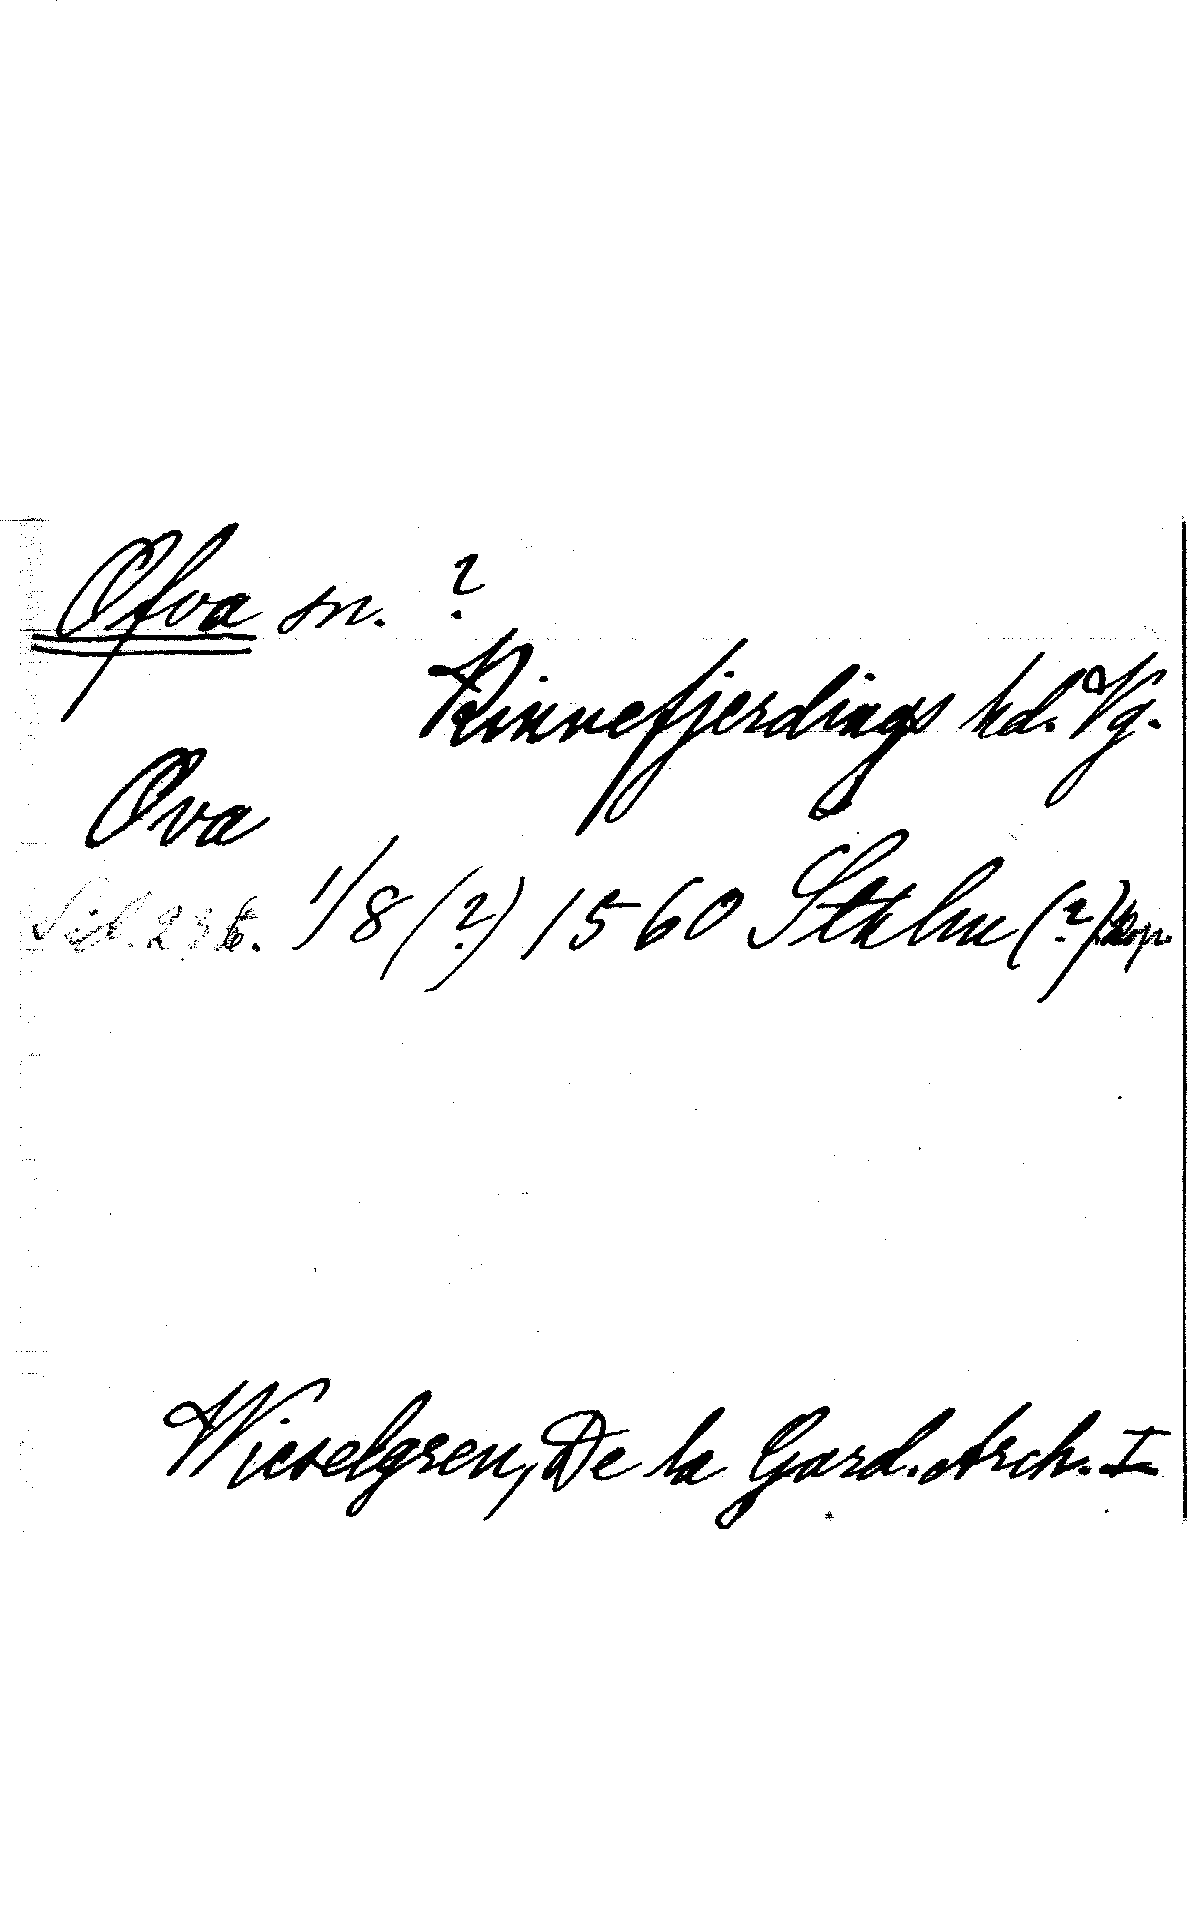 Ofva sn. ?
Kinnefjerdings hd. Vg.
Ova
Sid. 236. 1/8 (?) 1560 Sthlm (?) kop.
Wieselgren, De la Gard. Arch. I